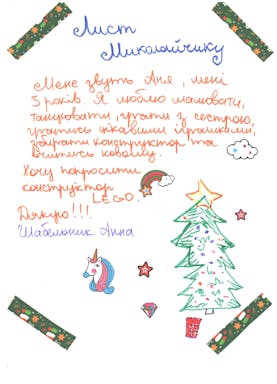 Лист
Миколайчику
Мене звуть Аня, мені
5 років. Я люблю малювати,
танцювати, грати з сестрою,
гратись цікавими іграшками,
збирати конструктор та
вчитись новому.
Хочу попросити
конструктор
LEGO.
Дякую!!!
Шабельник Анна